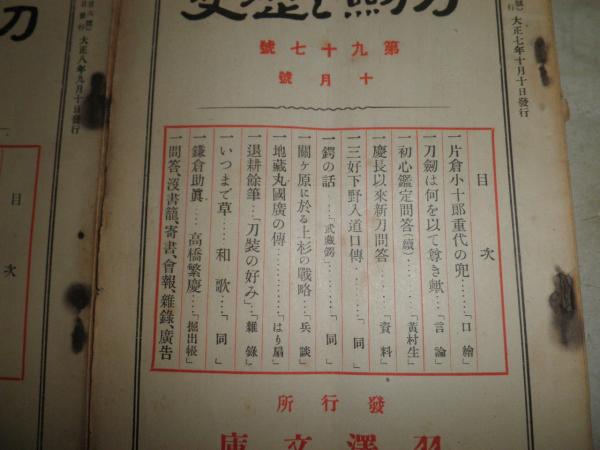 刀劍と歴史
大正七年十月十日發行
第九十七號
十月號
目次
一片倉小十郎重代の兜……「口繪」
一刀劍は何を以て尊き歟……「言論」
一初心鑑定問答(續)……「黃村生」
一慶長以來新刀問答……「資料」
一三好下野入道口傳……「同」
一鍔の話……「武藏鍔」……「同」
一關ケ原に於る上杉の戰略…「兵談」
一地藏丸國廣の傳……「はり扇」
一退耕餘筆…「刀裝の好み」「雜錄」
一いつまで草…和歌…「同」
一鎌倉助眞…高橋繁慶…「掘出帳」
一問答、沒書籠、寄書、會報、雜錄、廣告
發行所
羽澤文庫
刀
大正八年九月十日發行
目次